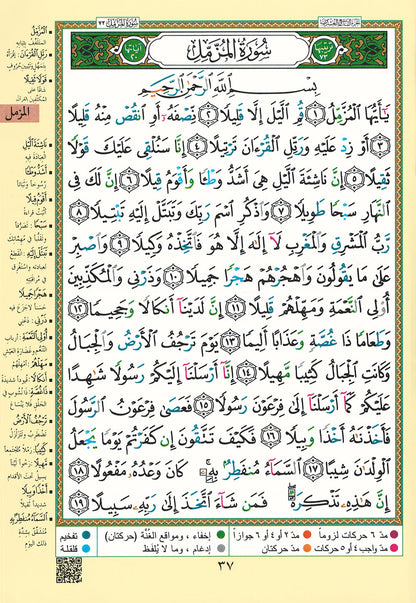 سُورَةُ المُزَّمِّل ٧٣
سُورَةُ الْمُزَّمِّل
ترتيبها ٧٣
آياتها ٢٠
بِسْمِ اللَّهِ الرَّحْمَٰنِ الرَّحِيمِ
يَٰٓأَيُّهَا ٱلْمُزَّمِّلُ ١ قُمِ ٱلَّيْلَ إِلَّا قَلِيلًا ٢ نِّصْفَهُۥٓ أَوِ ٱنقُصْ مِنْهُ قَلِيلًا
٣ أَوْ زِدْ عَلَيْهِ وَرَتِّلِ ٱلْقُرْءَانَ تَرْتِيلًا ٤ إِنَّا سَنُلْقِى عَلَيْكَ قَوْلًا
ثَقِيلًا ٥ إِنَّ نَاشِئَةَ ٱلَّيْلِ هِىَ أَشَدُّ وَطْـًٔا وَأَقْوَمُ قِيلًا ٦ إِنَّ لَكَ فِى
ٱلنَّهَارِ سَبْحًا طَوِيلًا ٧ وَٱذْكُرِ ٱسْمَ رَبِّكَ وَتَبَتَّلْ إِلَيْهِ تَبْتِيلًا ٨
رَّبُّ ٱلْمَشْرِقِ وَٱلْمَغْرِبِ لَآ إِلَٰهَ إِلَّا هُوَ فَٱتَّخِذْهُ وَكِيلًا ٩ وَٱصْبِرْ
عَلَىٰ مَا يَقُولُونَ وَٱهْجُرْهُمْ هَجْرًا جَمِيلًا ١٠ وَذَرْنِى وَٱلْمُكَذِّبِينَ
أُو۟لِى ٱلنَّعْمَةِ وَمَهِّلْهُمْ قَلِيلًا ١١ إِنَّ لَدَيْنَآ أَنكَالًا وَجَحِيمًا ١٢
وَطَعَامًا ذَا غُصَّةٍ وَعَذَابًا أَلِيمًا ١٣ يَوْمَ تَرْجُفُ ٱلْأَرْضُ وَٱلْجِبَالُ
وَكَانَتِ ٱلْجِبَالُ كَثِيبًا مَّهِيلًا ١٤ إِنَّآ أَرْسَلْنَآ إِلَيْكُمْ رَسُولًا شَٰهِدًا
عَلَيْكُمْ كَمَآ أَرْسَلْنَآ إِلَىٰ فِرْعَوْنَ رَسُولًا ١٥ فَعَصَىٰ فِرْعَوْنُ ٱلرَّسُولَ
فَأَخَذْنَٰهُ أَخْذًا وَبِيلًا ١٦ فَكَيْفَ تَتَّقُونَ إِن كَفَرْتُمْ يَوْمًا يَجْعَلُ
ٱلْوِلْدَٰنَ شِيبًا ١٧ ٱلسَّمَآءُ مُنفَطِرٌۢ بِهِۦ كَانَ وَعْدُهُۥ مَفْعُولًا ١٨
إِنَّ هَٰذِهِۦ تَذْكِرَةٌ فَمَن شَآءَ ٱتَّخَذَ إِلَىٰ رَبِّهِۦ سَبِيلًا ١٩
المُزَّمِّل
نَاشِئَةَ اللَّيْلِ
أَشَدُّ وَطْئًا
أَقْوَمُ قِيلًا
سَبْحًا
هَجْرًا جَمِيلًا
مَهِّلْهُمْ
تَرْجُفُ الْأَرْضُ
أَخْذًا وَبِيلًا
مدّ ٦ حركات لزوماً
مدّ ٢ أو ٤ أو ٦ جوازاً
إخفاء، ومواقع الغُنَّة (حركتان)
تفخيم
مدّ واجب ٤ أو ٥ حركات
مدّ حركتان
إدغام، وما لا يُلفَظ
قلقلة
٣٧